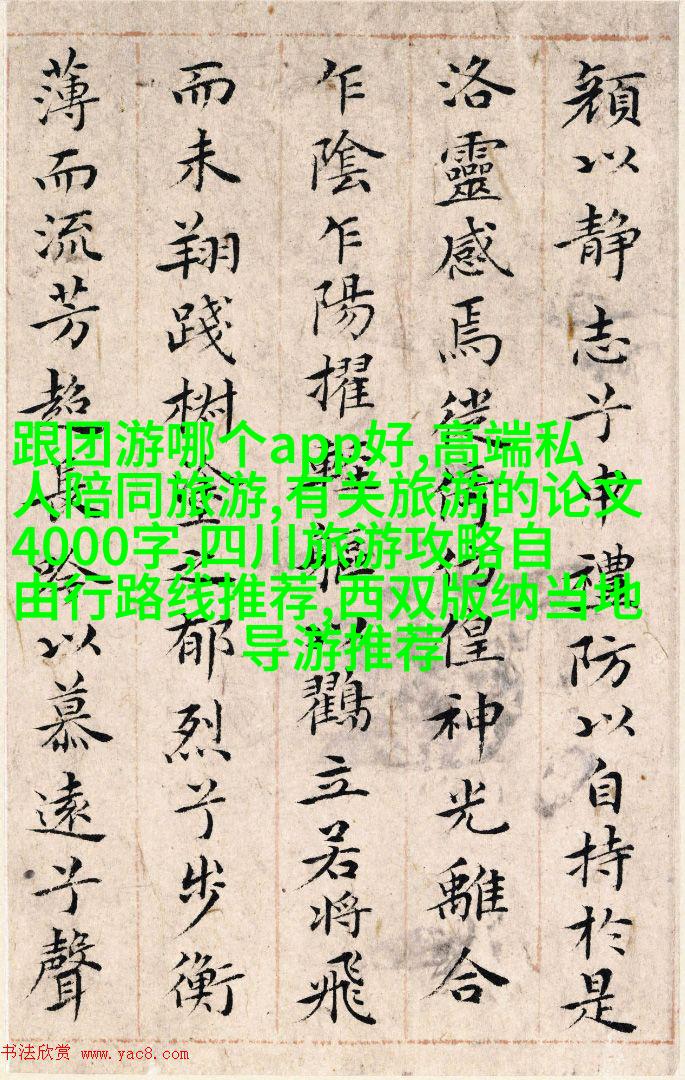 顏以静志兮申禮防以自持於是
洛靈感焉徙倚傍偟神光離合
乍陰乍陽擢輕軀以鶴立若將飛
而未翔踐椒塗之郁烈兮步衡
薄而流芳超長吟以慕遠兮聲
跟团游哪个app好,高端私
人陪同旅游,有关旅游的论文
4000字,四川旅游攻略自
由行路线推荐,西双版纳当地
导游推荐
书法欣赏 www.yac8.com